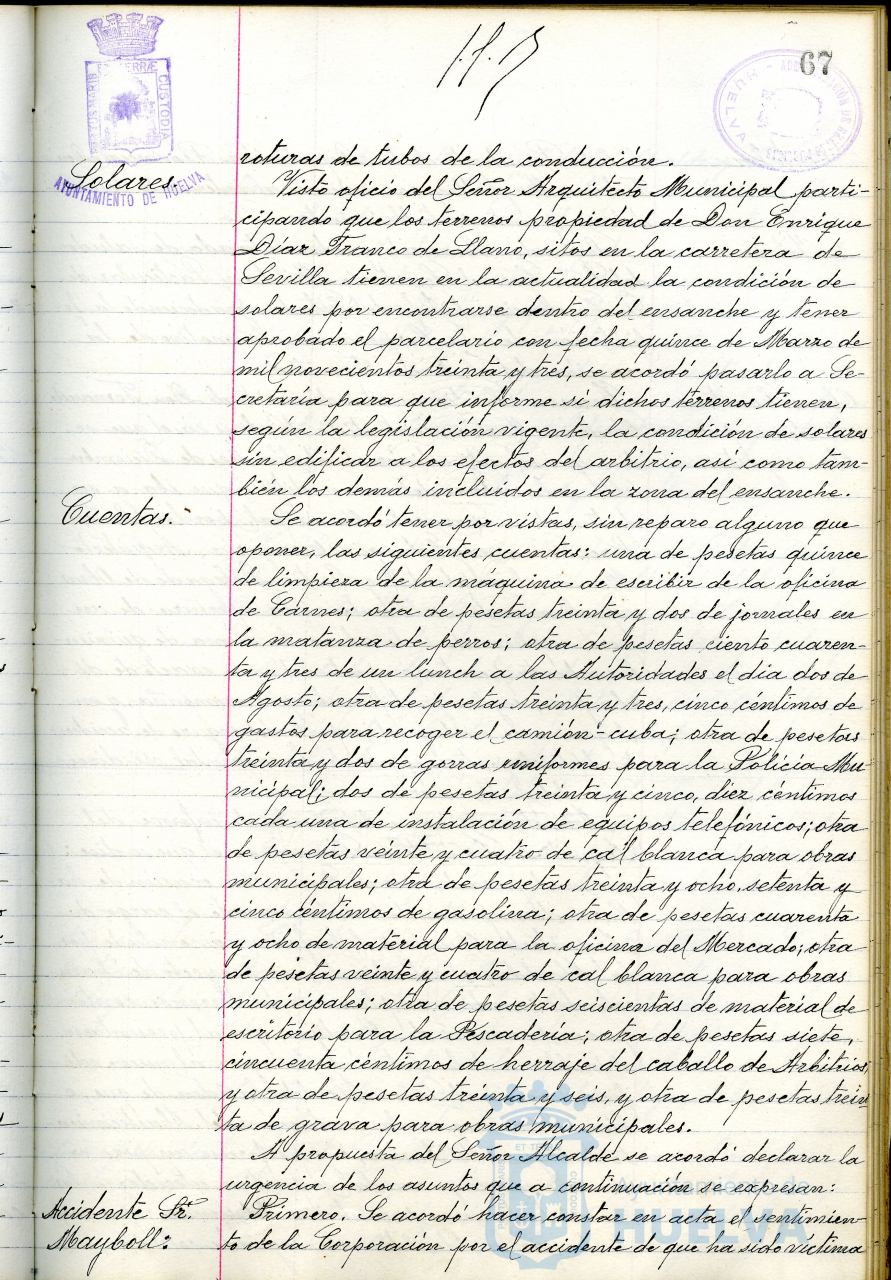 67
AYUNTAMIENTO DE HUELVA
roturas de tubos de la conducción.
Solares.
Visto oficio del Señor Arquitecto Municipal parti-
cipando que los terrenos propiedad de Don Enrique
Díaz Franco de Llano, sitos en la carretera de
Sevilla tienen en la actualidad la condición de
solares por encontrarse dentro del ensanche y tener
aprobado el parcelario con fecha quince de Marzo de
mil novecientos treinta y trés, se acordó pasarlo a Se-
cretaría para que informe si dichos terrenos tienen,
según la legislación vigente, la condición de solares
sin edificar a los efectos del arbitrio, así como tam-
bién los demás incluidos en la zona del ensanche.
Cuentas.
Se acordó tener por vistas, sin reparo alguno que
oponer, las siguientes cuentas: una de pesetas quince
de limpieza de la máquina de escribir de la oficina
de Carnes; otra de pesetas treinta y dos de jornales en
la matanza de perros; otra de pesetas ciento cuaren-
ta y tres de un lunch a las Autoridades el dia dos de
Agosto; otra de pesetas treinta y tres, cinco céntimos de
gastos para recoger el camión-cuba; otra de pesetas
treinta y dos de gorras uniformes para la Policía Mu-
nicipal; dos de pesetas treinta y cinco, diez céntimos
cada una de instalación de equipos telefónicos; otra
de pesetas veinte y cuatro de cal blanca para obras
municipales; otra de pesetas treinta y ocho, setenta y
cinco céntimos de gasolina; otra de pesetas cuarenta
y ocho de material para la oficina del Mercado; otra
de pesetas veinte y cuatro de cal blanca para obras
municipales; otra de pesetas seiscientas de material de
escritorio para la Pescadería; otra de pesetas siete,
cincuenta céntimos de herraje del caballo de Arbitrios,
y otra de pesetas treinta y seis, y otra de pesetas trein-
ta de grava para obras municipales.
A propuesta del Señor Alcalde se acordó declarar la
urgencia de los asuntos que a continuación se expresan:
Accidente Sr.
Mayboll:
Primero. Se acordó hacer constar en acta el sentimien-
to de la Corporación por el accidente de que ha sido víctima
HUELVA